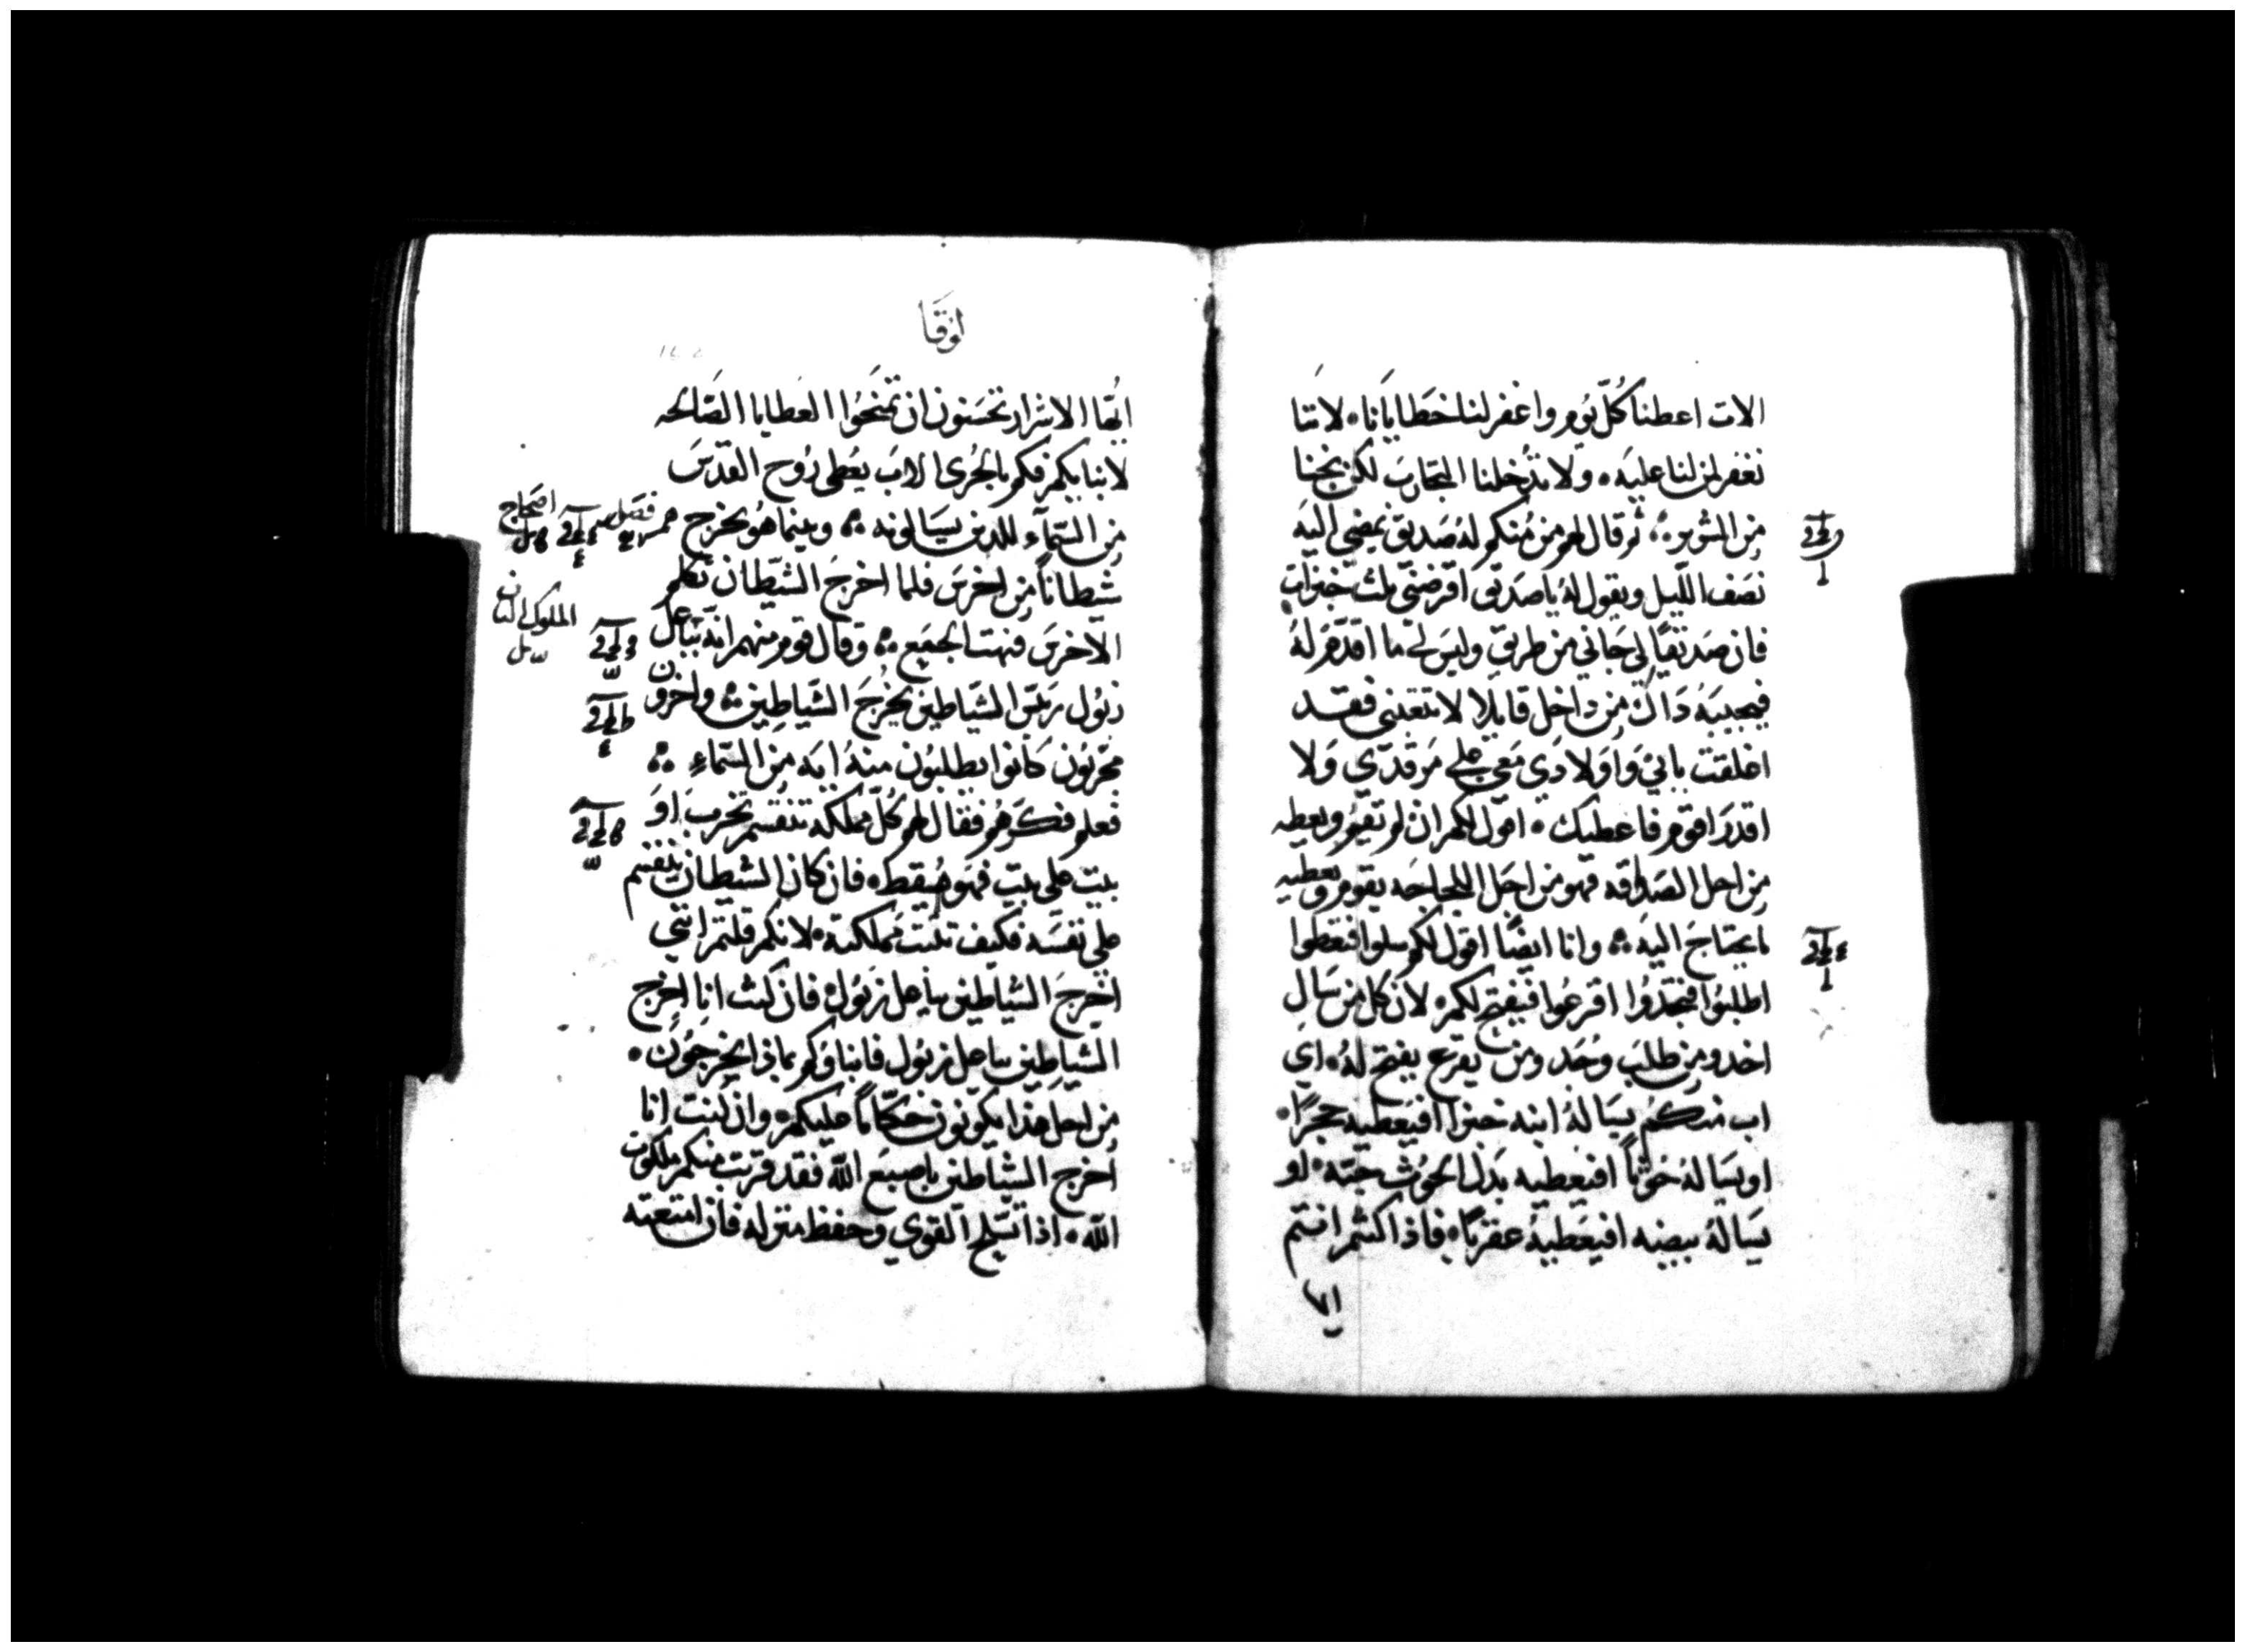 الات اعطنا كُلّ يَوم واغفر لنا خطايانا، لاننا
نغفر لمن لنا عليه، ولا تدخلنا التجارب لكن نجنا
من الشرير ثم قال لهم من منكم له صديق يمضي اليه
نصف الليل ويقول له يا صديقى اقرضني ثلث خبزات
فان صديقًا لي جاني من طريق وليس لي ما اقدم له
فيجيبه داك من داخل قايلا لا تتعبني فقد
اغلقت بابي واولادي معي على مرقدي ولا
اقدر اقوم فاعطيك، اقول لكم ان لم يقوم ويعطيه
من اجل الصداقه فهو من اجل اللجاجه يقوم ويعطيه
ما يحتاج اليه وانا ايضًا اقول لكم سلوا فتعطوا
اطلبوا فتجدوا اقرعوا فيفتح لكم، لان كل من سال
اخد ومن طلب وجد ومن يقرع يفتح له، اي
اب منكم يساله ابنه خبزا افيعطيه حجرًا،
او يساله حوتًا افيعطيه بدل الحوث حيته، او
يساله بيضه افيعطيه عقربًا، فاذا كنتم انتم
ايها
لوقا
ايها الاشرار تحسنون ان تمنحوا العطايا الصالحه
لابنايكم فكم بالحرى الاب يعطى روح القدس
من السمآء للدين يسالونه وبينما هو يخرج
شيطانًا من اخرس فلما اخرج الشيطان تكلم
الاخرس فبهت الجميع وقال قوم منهم انه بباعل
زبول ريس الشياطين يخرج الشياطين واخرون
مجربون كانوا يطلبون منه ايه من السماءِ
فعلم فكرهم فقال لهم كل مملكه تنقسم تخرب او
بيت على بيت فهو يسقط، فان كان الشيطان ينقسم
على نفسه فكيف تثبت مملكته لانكم قلتم انني
اخرج الشياطين بباعل زبول فان كنت انا اخرج
الشياطين بباعل زبول فابناوكم بماذا يخرجون،
من اجل هذا يكونون حكامًا عليكم، وان كنت انا
اخرج الشياطين باصبع الله فقد قربت منكم ملكوت
الله، اذا تسلح القوي وحفظ منزله فان امتعته
فصل
اصحاح